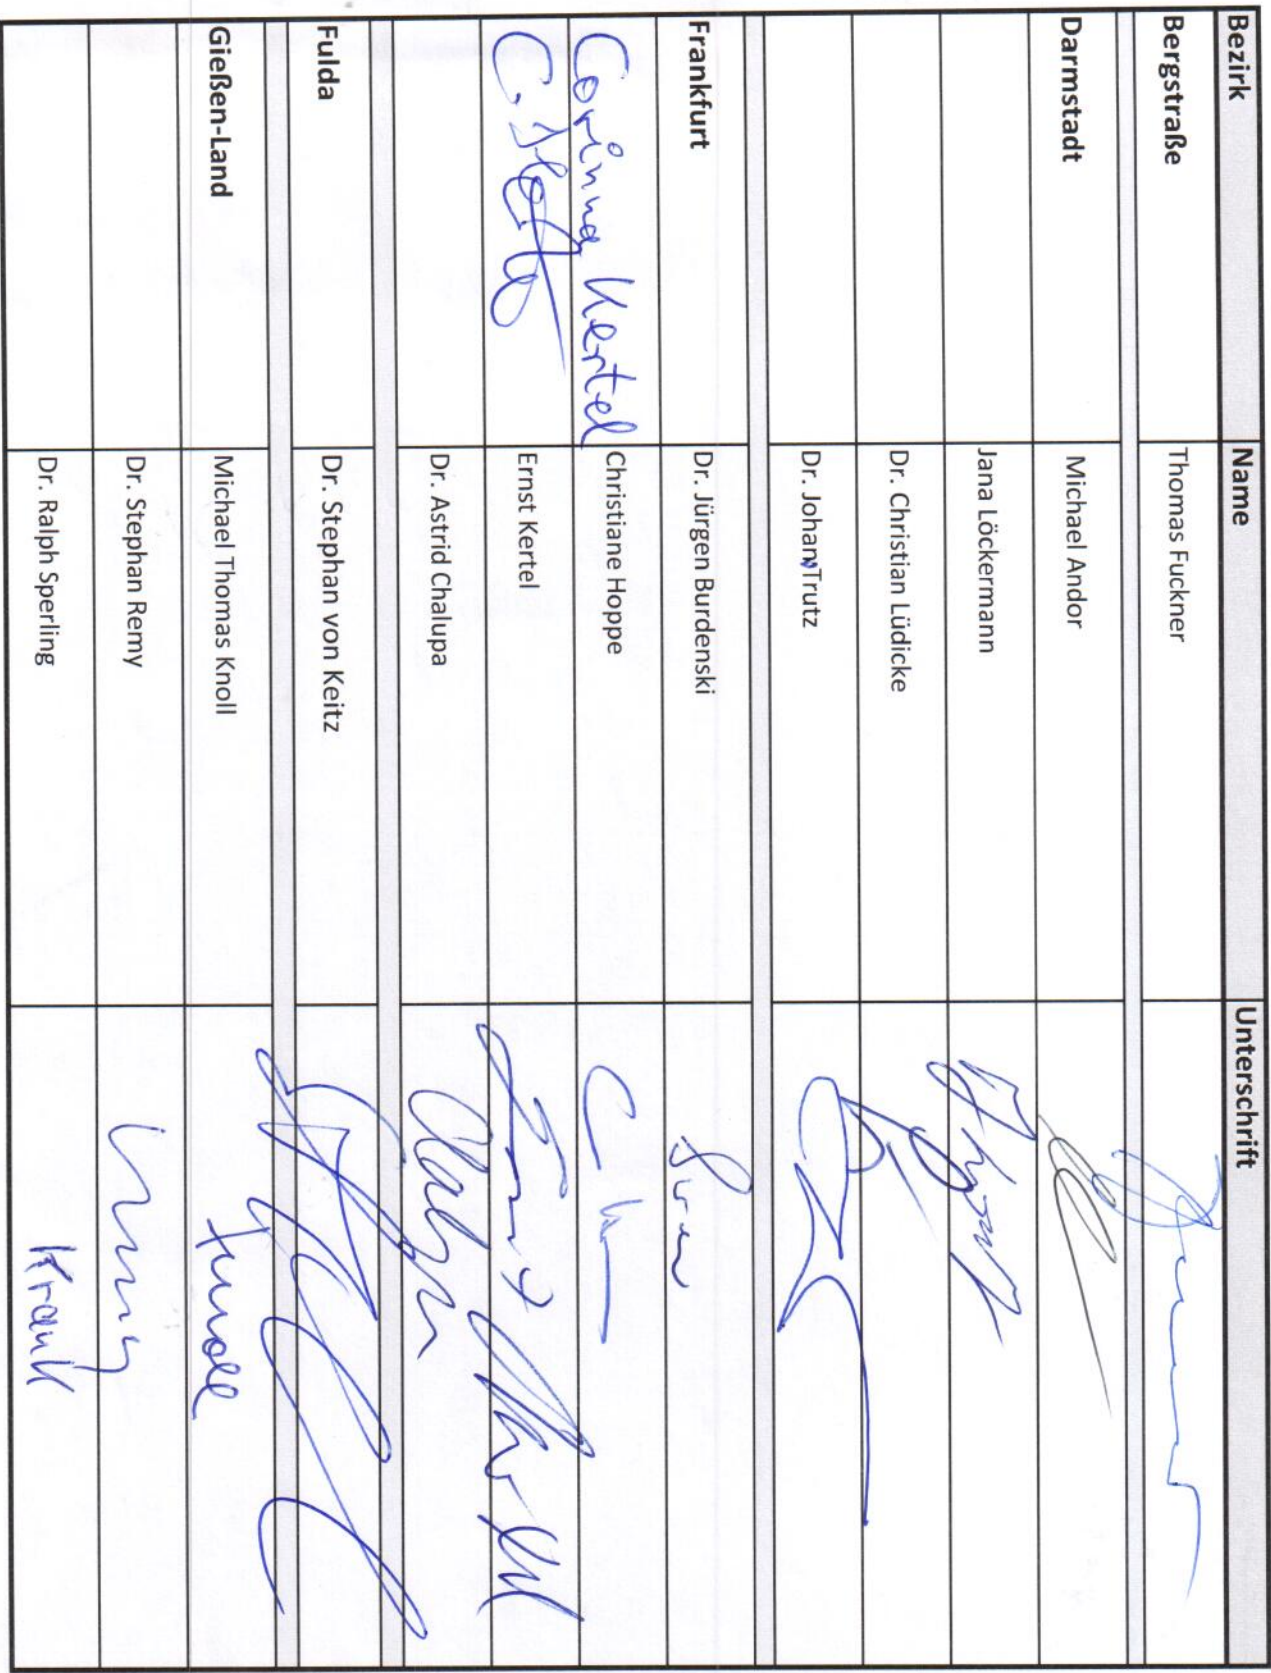 Bezirk Name Unterschrift
Bergstraße Thomas Fuckner
Darmstadt Michael Andor
Jana Löckermann
Dr. Christian Lüdicke
Dr. Johann Trutz
Frankfurt Dr. Jürgen Burdenski
Corinna Kertel Christiane Hoppe
Ernst Kertel
Dr. Astrid Chalupa
Fulda Dr. Stephan von Keitz
Gießen-Land Michael Thomas Knoll Knoll
Dr. Stephan Remy
Dr. Ralph Sperling Krank